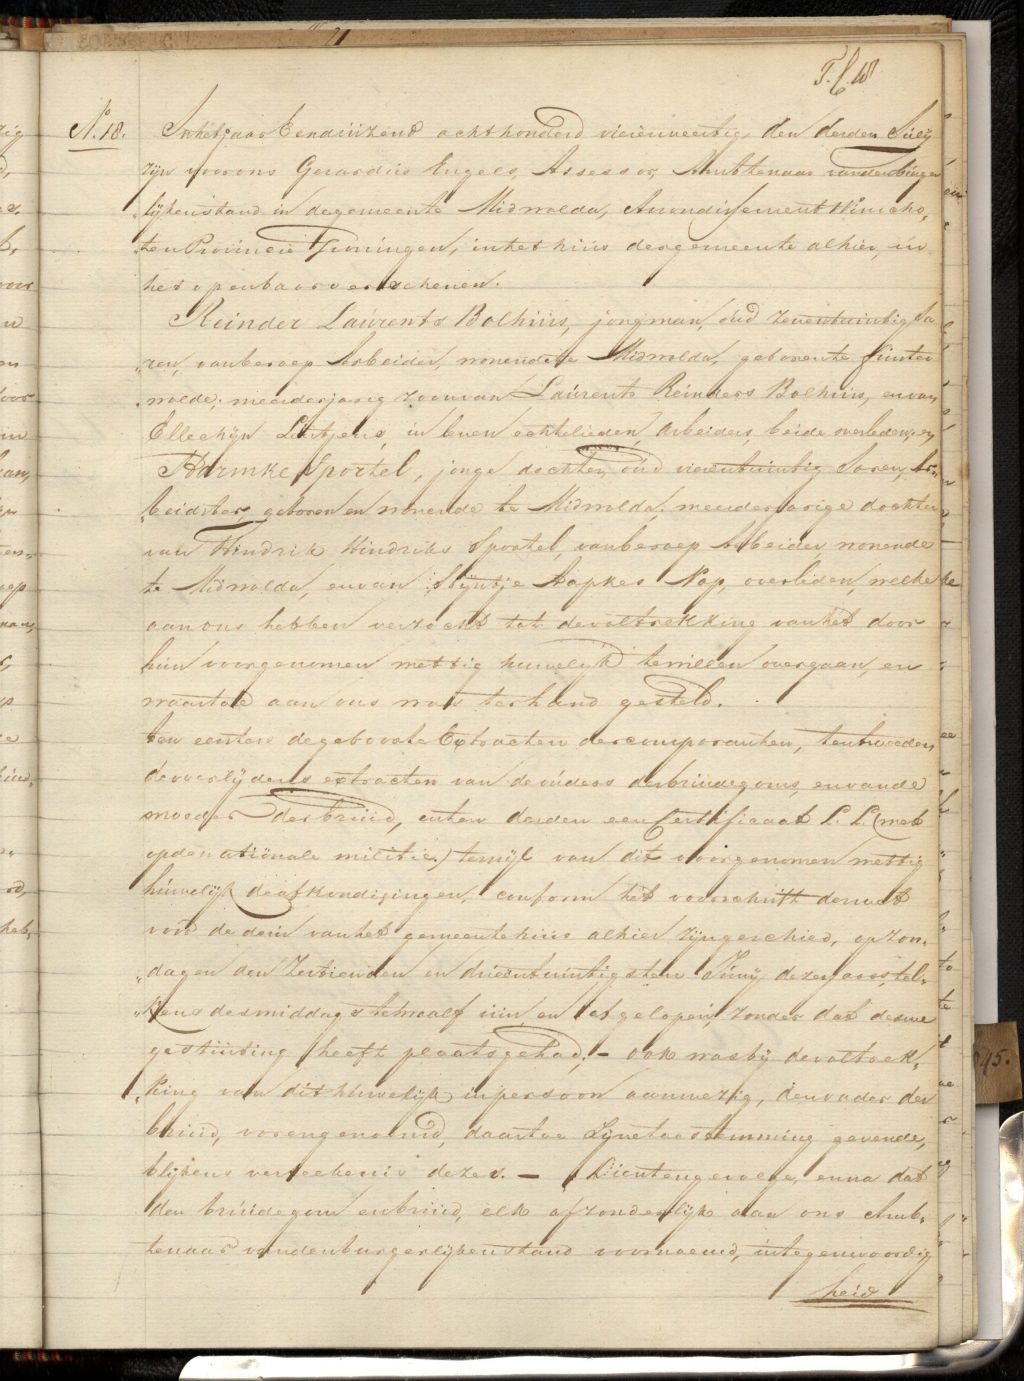 21
F. C. 18
N. 18. In het jaar Eenduizend achthonderd vierenveertig, den derden Julij
zijn voor ons Gerardus Engels, Assessor, Ambtenaar van den burger
"lijken stand in de gemeente Midwolda, Arrondissement Winscho,
ten Provincie Groningen, in het huis der gemeente alhier, in
het openbaar verschenen.
Reinder Laurents Bolhuis, jongman, oud zeventwintig Ja
"ren, van beroep Arbeider, wonende te Midwolda, geboren te Finster
wolde, meerderjarig zoon van Laurents Reinders Bolhuis, en van
Ellechijn Luitjens, in leven echtelieden, Arbeiders, beide overleden, en
Harmke Sportel, jonge dochter, oud vierentwintig Jaren, Ar,,
"beidster, geboren en wonende te Midwolda, meerderjarige dochter
van Hindrik Hindriks Sportel, van beroep Arbeider, wonende
te Midwolda, en van Stijntje Aapkes Nap, overleden, welke
aan ons hebben verzocht tot de voltrekking van het door
hun voorgenomen wettig huwelijk te willen overgaan, en
waartoe aan ons was ter hand gesteld.
ten eersten de geboorte Extracten der comparanten, ten tweeden
de overlijdens extracten van de ouders des bruidegoms, en van de
moeder der bruid, en ten derden een Certificaat L. L. (wet
op de nationale militie) terwijl van dit voorgenomen wettig
huwelijk de afkondigingen, conform het voorschrift der wet
voor de deur van het gemeentehuis alhier zijn geschied, op Zon,
"dagen den Zestienden en drieentwintigsten Junij dezes jaars, tel,
"kens des middags te twaalf uur, en afgelopen, zonder dat derzelve
gestuiting heeft plaats gehad; – ook was bij de voltrek,
"king van dit huwelijk in persoon aanwezig, den vader der
bruid, vorengenoemd, daartoe Zijne toestemming gevende,
blijkens verteekenis dezes. – Dientengevolge, en na dat
den bruidegom en bruid, elk afzonderlijk aan ons Amb,
tenaar van den burgerlijken stand voornoemd, in tegenwoordig
heid